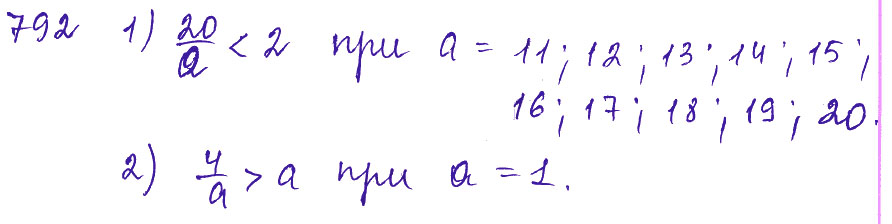 792 1) 20/a < 2 при a = 11; 12; 13; 14; 15;
16; 17; 18; 19; 20.
2) 4/a > a при a = 1.